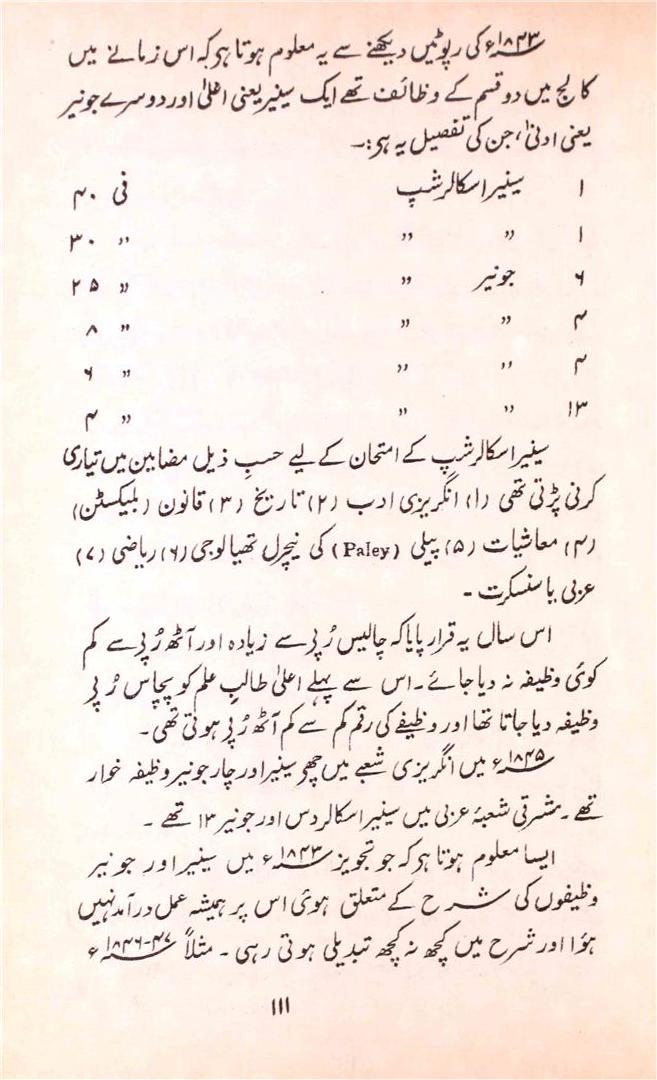 ۱۸۴۳ء کی رپوٹیں دیکھنے سے یہ معلوم ہوتا ہر کہ اس زمانے میں
کالج میں دو قسم کے وظائف تھے ایک سینیر یعنی اعلیٰ اور دوسرے جونیر
یعنی ادنیٰ، جن کی تفصیل یہ ہر:۔
۱ سینیر اسکالرشپ فی ۴۰
۱ " " " ۳۰
۶ جونیر " " ۲۵
۴ " " " ۸
۴ " " " ۶
۱۳ " " " ۴
سینیر اسکالرشپ کے امتحان کے لیے حسبِ ذیل مضابین میں تیاری
کرنی پڑتی تھی (۱) انگریزی ادب (۲) تاریخ (۳) قانون (بلیکسٹن)
(۴) معاشیات (۵) پیلی (Paley) کی نیچرل تھیالوجی (۶) ریاضی (۷)
عربی یا سنسکرت ۔
اس سال یہ قرار پایا کہ چالیس رُپی سے زیادہ اور آٹھ رُپی سے کم
کوئ وظیفہ نہ دیا جائے۔ اس سے پہلے اعلیٰ طالبِ علم کو پچاس رُپی
وظیفہ دیا جاتا تھا اور وظیفے کی رقم کم سے کم آٹھ رُپی ہوتی تھی۔
۱۸۴۵ء میں انگریزی شعبے میں چھو سینیر اور چار جونیر وظیفہ خوار
تھے ۔ مشرقی شعبۂ عربی میں سینیر اسکالر دس اور جونیر ۱۳ تھے ۔
ایسا معلوم ہوتا ہر کہ جو تجویز ۱۸۴۳ء میں سینیر اور جونیر
وظیفوں کی شرح کے متعلق ہوئ اس پر ہمیشہ عمل درآمد نہیں
ہؤا اور شرح میں کچھ نہ کچھ تبدیلی ہوتی رہی ۔ مثلاً ۴۷-۱۸۴۶ء
۱۱۱